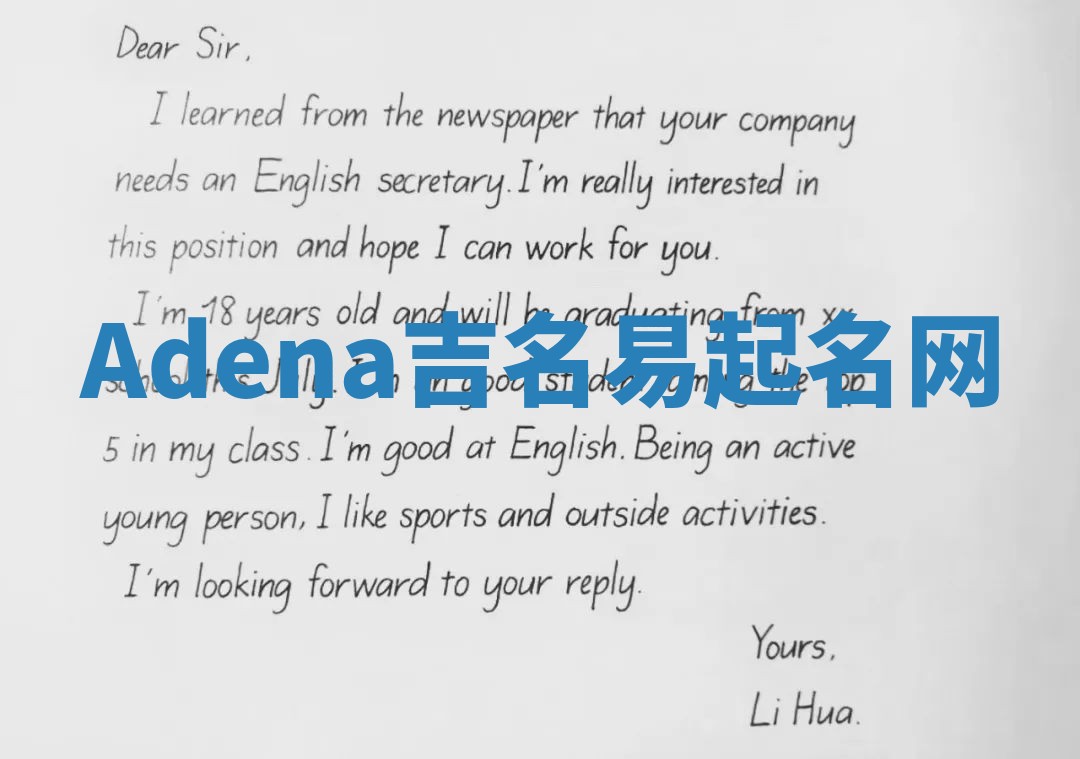 Dear Sir,
I learned from the newspaper that your company
needs an English secretary. I'm really interested in
this position and hope I can work for you.
I'm 18 years old and will be graduating from xx
Adena吉名易起名网
school this July. I'm an good student among the top
5 in my class. I'm good at English. Being an active
young person, I like sports and outside activities.
I'm looking forward to your reply.
Yours,
Li Hua.